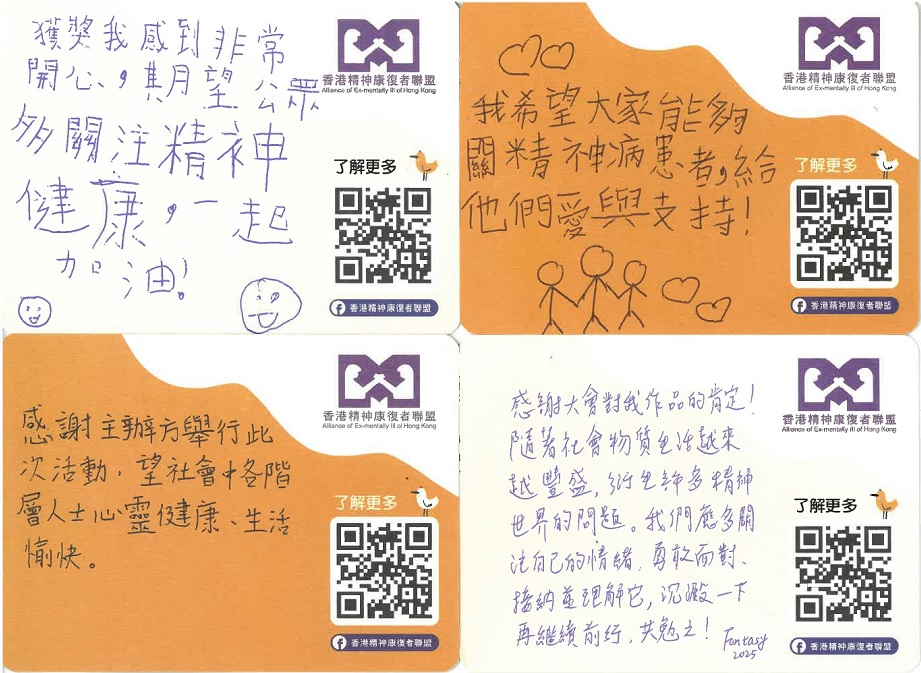 獲獎我感到非常
開心,期望公眾
多關注精神
健康,一起
加油!
香港精神康復者聯盟
Alliance of Ex-mentally ill of Hong Kong
了解更多
香港精神康復者聯盟
我希望大家能夠
關精神病患者,給
他們愛與支持!
香港精神康復者聯盟
Alliance of Ex-mentally ill of Hong Kong
了解更多
香港精神康復者聯盟
感謝主辦方舉行此
次活動,望社會中各階
層人士心靈健康、生活
愉快。
香港精神康復者聯盟
Alliance of Ex-mentally ill of Hong Kong
了解更多
香港精神康復者聯盟
感謝大會對我作品的肯定!
隨著社會物質生活越來
越豐盛,衍生許多精神
世界的問題。我們應多關
注自己的情緒,勇敢面對、
接納並理解它,沉澱一下
再繼續前行,共勉之!
Fantasy
2025
香港精神康復者聯盟
Alliance of Ex-mentally ill of Hong Kong
了解更多
香港精神康復者聯盟